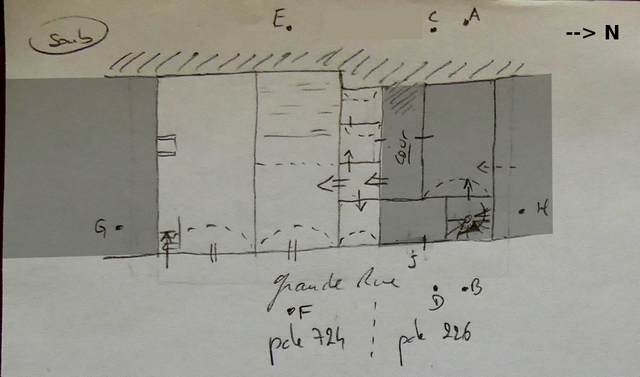 E C A --> N
cour
G
H
J
grande Rue
D B
F
pcle 724 pcle 226